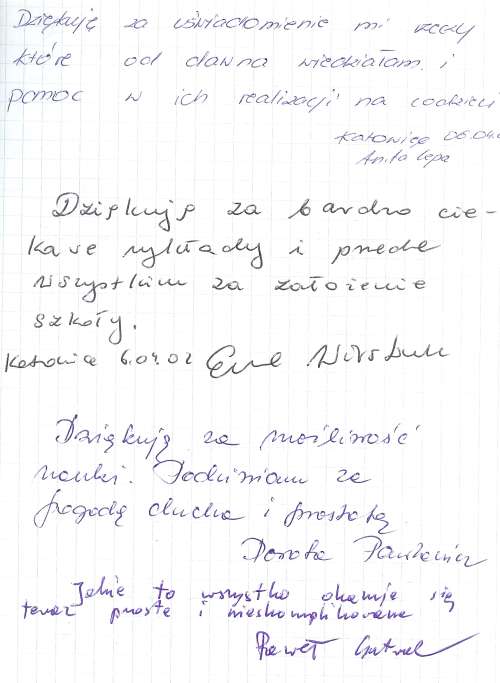 Dziękuję za uświadomienie mi rzeczy
które od dawna wiedziałam i
pomoc w ich realizacji na codzień
Katowice 06.04.
Anita Lepa
Dziękuję za bardzo cie-
kawe wykłady i przede
wszystkim za założenie
szkoły.
Katowice 6.04.02 Ewa
Dziękuję za możliwość
nauki. Podziwiam za
pogodę ducha i prostotę
Dorota
Jakie to wszystko okazuje się
teraz proste i nieskomplikowane
Paweł